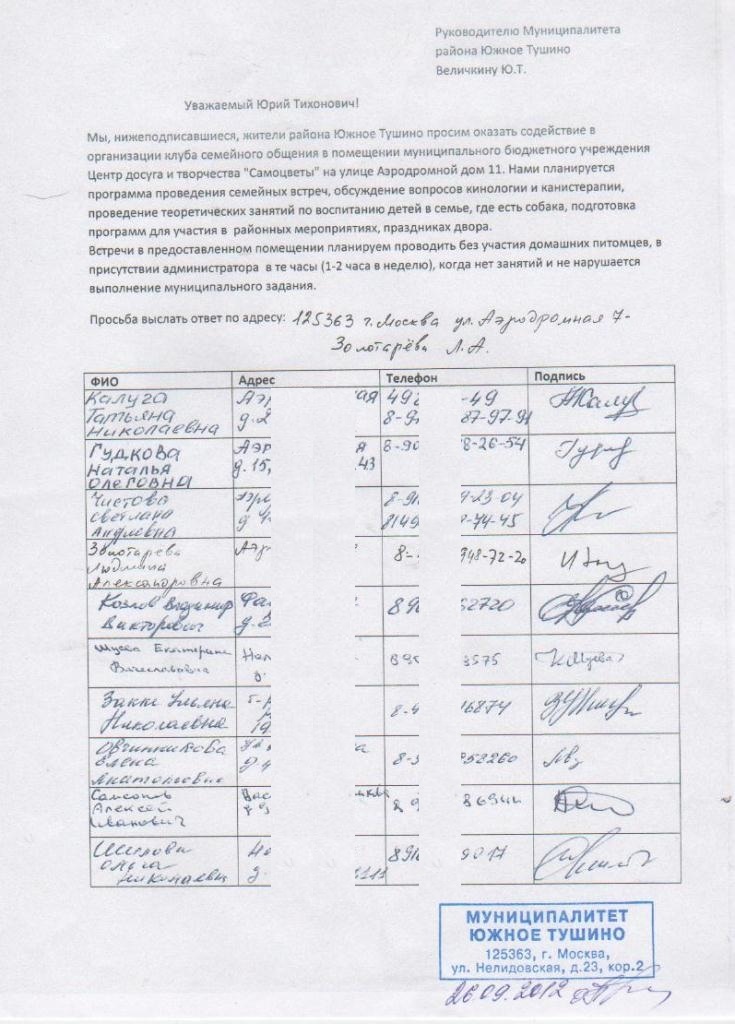 Руководителю Муниципалитета
района Южное Тушино
Величкину Ю.Т.
Уважаемый Юрий Тихонович!
Мы, нижеподписавшиеся, жители района Южное Тушино просим оказать содействие в
организации клуба семейного общения в помещении муниципального бюджетного учреждения
Центр досуга и творчества "Самоцветы" на улице Аэродромной дом 11. Нами планируется
программа проведения семейных встреч, обсуждение вопросов кинологии и канистерапии,
проведение теоретических занятий по воспитанию детей в семье, где есть собака, подготовка
программ для участия в районных мероприятиях, праздниках двора.
Встречи в предоставленном помещении планируем проводить без участия домашних питомцев, в
присутствии администратора в те часы (1-2 часа в неделю), когда нет занятий и не нарушается
выполнение муниципального задания.
Просьба выслать ответ по адресу: 125363 г. Москва ул. Аэродромная 7-
Золотарёва Л.А.
ФИО Адрес Телефон Подпись
Калуга Аэр ая 49 -49
Татьяна д. 8-9 87-97-91
Николаевна
Гудкова Аэр 8-90 8-26-54
Наталья д. 15, 43
Олеговна
Чистова 8-91 -23-04
Светлана д -74-45
Золотарева Аэр 8- 948-72-20
Людмила
Александровна
Козлов Владимир 89 52720
Викторович д.
Екатерина 3575
Вячеславовна
Ульяна 8-4 16874
Николаевна
Овчинникова 8- 952260
Елена д
Анатольевна
Самсонов 8 9 86944
Алексей
Иванович
891 9017
Ольга
Николаевна д. 111
МУНИЦИПАЛИТЕТ
ЮЖНОЕ ТУШИНО
125363, г. Москва,
ул. Нелидовская, д.23, кор.2
26.09.2012